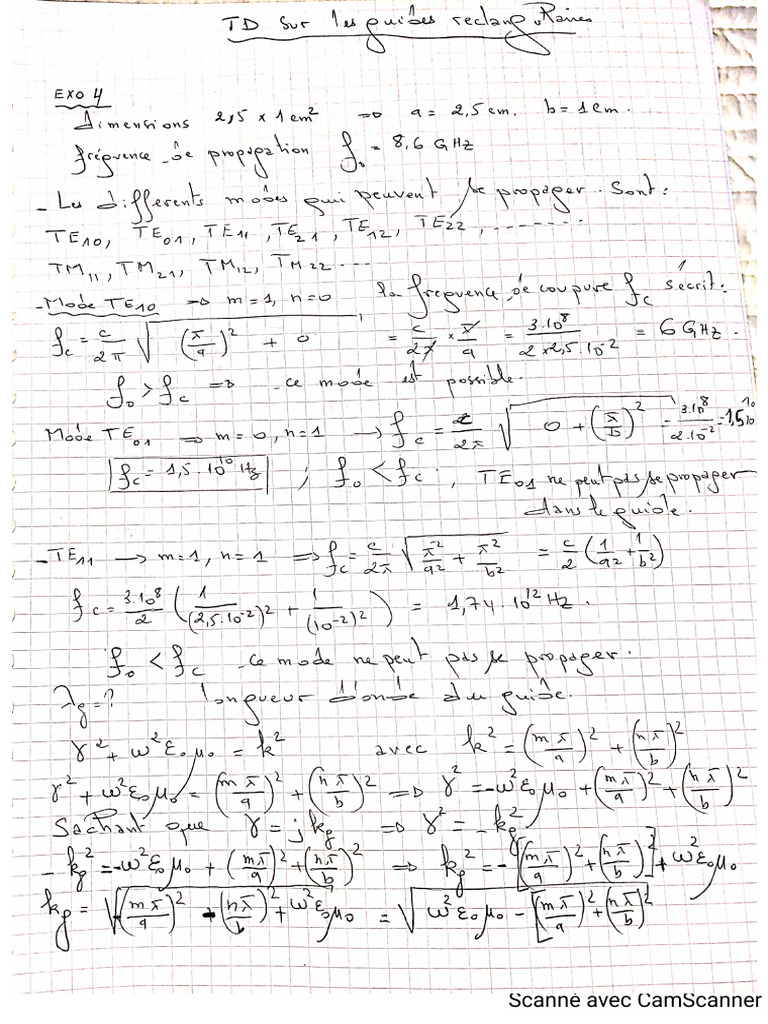 TD Sur les guides rectangulaires
EXO 4
dimensions 2,5 x 1 cm² => a = 2,5 cm. b = 1 cm.
fréquence de propagation f₀ = 8,6 GHz
- Les differents modes qui peuvent se propager. Sont:
TE₁₀, TE₀₁, TE₁₁, TE₂₁, TE₁₂, TE₂₂, ........
TM₁₁, TM₂₁, TM₁₂, TM₂₂ ...
- Mode TE10 => m=1, n=0 la frequence de coupure f_c s'écrit:
f_c = c/2π √((π/a)² + 0) = c/2π × π/a = 3.10⁸/2×2,5.10⁻² = 6 GHz.
f₀ > f_c => ce mode est possible.
Mode TE₀₁ => m=0, n=1 → f_c = c/2π √(0 + (π/b)²) = 3.10⁸/2.10⁻² = 1,5.10¹⁰
f_c = 1,5.10¹⁰ Hz ; f₀ < f_c, TE₀₁ ne peut pas se propager
dans le guide.
- TE₁₁ → m=1, n=1 => f_c = c/2π √(π²/a² + π²/b²) = c/2 (1/a² + 1/b²)
f_c = 3.10⁸/2 (1/(2,5.10⁻²)² + 1/(10⁻²)²) = 1,74.10¹² Hz.
f₀ < f_c ce mode ne peut pas se propager.
λg = ? longueur d'onde du guide.
γ² + ω²ε₀μ₀ = k² avec k² = (mπ/a)² + (nπ/b)²
γ² + ω²ε₀μ₀ = (mπ/a)² + (nπ/b)² => γ² = -ω²ε₀μ₀ + (mπ/a)² + (nπ/b)²
Sachant que γ = j kg => γ² = -kg²
- kg² = -ω²ε₀μ₀ + (mπ/a)² + (nπ/b)² => kg² = -[(mπ/a)² + (nπ/b)²] + ω²ε₀μ₀
kg = √(-(mπ/a)² - (nπ/b)² + ω²ε₀μ₀) = √(ω²ε₀μ₀ - [(mπ/a)² + (nπ/b)²
Scanné avec CamScanner